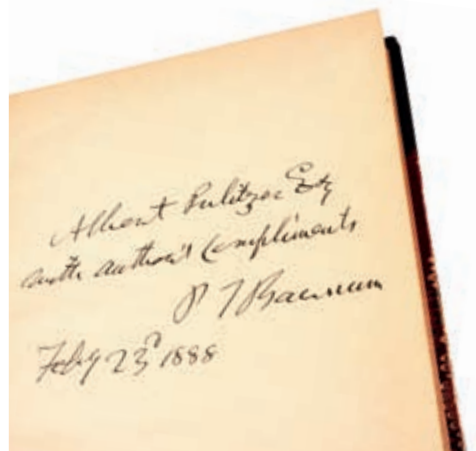 Albert Pulitzer Esq
with author's compliments
P T Barnum
Feby 23d 1888